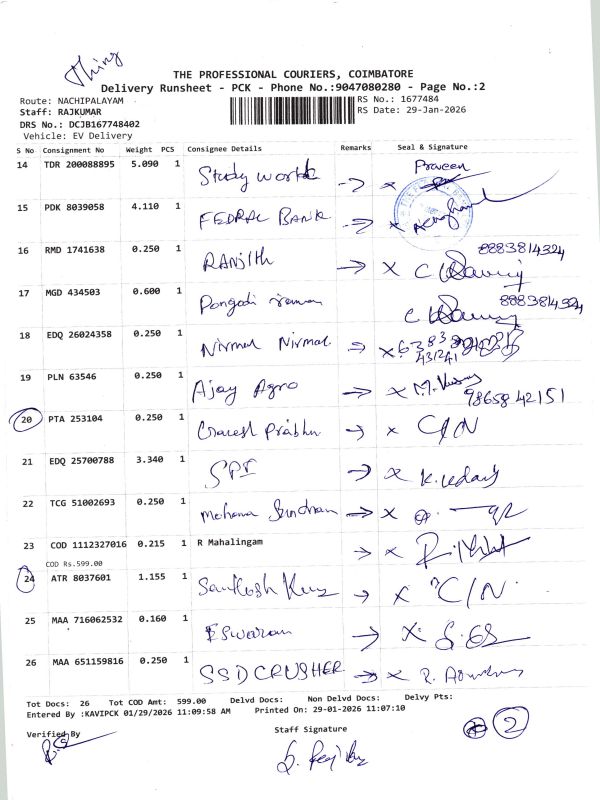 Thing
THE PROFESSIONAL COURIERS, COIMBATORE
Delivery Runsheet - PCK - Phone No.:9047080280 - Page No.:2
Route: NACHIPALAYAM RS No.: 1677484
Staff: RAJKUMAR RS Date: 29-Jan-2026
DRS No.: DCJB167748402
Vehicle: EV Delivery
S No Consignment No Weight PCS Consignee Details Remarks Seal & Signature
14 TDR 200088895 5.090 1 Study world -> x Praveen
15 PDK 8039058 4.110 1 FEDRAL BANK -> x
16 RMD 1741638 0.250 1 RANJITH -> x 8883814324
17 MGD 434503 0.600 1 Pongodi 8883814324
18 EDQ 26024358 0.250 1 Nirmal Nirmal -> x
19 PLN 63546 0.250 1 Ajay Agro -> x 9865842151
20 PTA 253104 0.250 1 Prabhu -> x C/N
21 EDQ 25700788 3.340 1 SPI -> x K. Uday
22 TCG 51002693 0.250 1 Mohana Sundram -> x
23 COD 1112327016 0.215 1 R Mahalingam -> x
COD Rs.599.00
24 ATR 8037601 1.155 1 Santhosh -> x C/N
25 MAA 716062532 0.160 1 Eswaran -> x
26 MAA 651159816 0.250 1 SSD CRUSHER -> x
Tot Docs: 26 Tot COD Amt: 599.00 Delvd Docs: Non Delvd Docs: Delvy Pts:
Entered By :KAVIPCK 01/29/2026 11:09:58 AM Printed On: 29-01-2026 11:07:10
Verified By Staff Signature 2